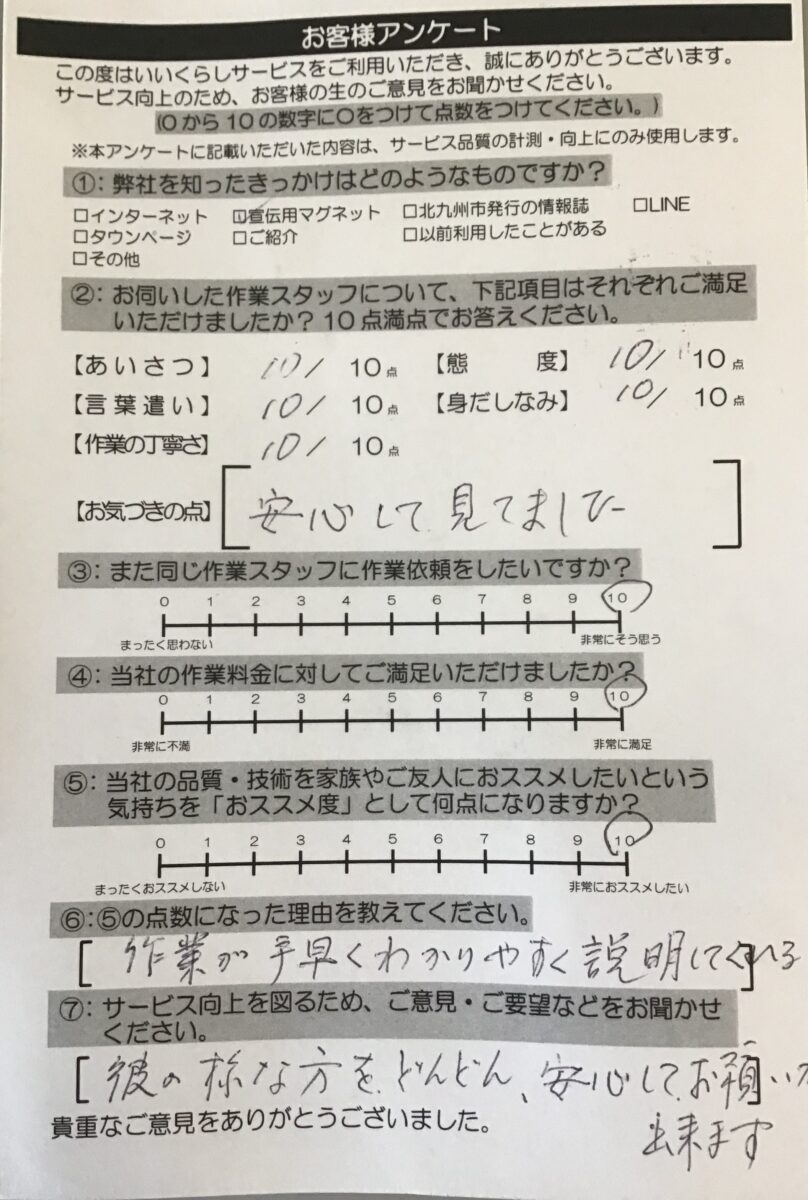 お客様アンケート
この度はいいくらしサービスをご利用いただき、誠にありがとうございます。
サービス向上のため、お客様の生のご意見をお聞かせください。
(0から10の数字に〇をつけて点数をつけてください。)
※本アンケートに記載いただいた内容は、サービス品質の計測・向上にのみ使用します。
①：弊社を知ったきっかけはどのようなものですか？
□インターネット □宣伝用マグネット □北九州市発行の情報誌 □LINE
□タウンページ □ご紹介 □以前利用したことがある
□その他
②：お伺いした作業スタッフについて、下記項目はそれぞれご満足
いただけましたか？10点満点でお答えください。
【あいさつ】 10/ 10点 【態度】 10/ 10点
【言葉遣い】 10/ 10点 【身だしなみ】 10/ 10点
【作業の丁寧さ】 10/ 10点
【お気づきの点】 安心して見てました
③：また同じ作業スタッフに作業依頼をしたいですか？
0 1 2 3 4 5 6 7 8 9 10
まったく思わない 非常にそう思う
④：当社の作業料金に対してご満足いただけましたか？
0 1 2 3 4 5 6 7 8 9 10
非常に不満 非常に満足
⑤：当社の品質・技術を家族やご友人におススメしたいという
気持ちを「おススメ度」として何点になりますか？
0 1 2 3 4 5 6 7 8 9 10
まったくおススメしない 非常におススメしたい
⑥：⑤の点数になった理由を教えてください。
[作業が手早くわかりやすく説明してくれる]
⑦：サービス向上を図るため、ご意見・ご要望などをお聞かせ
ください。
[彼の様な方をどんどん、安心してお願い]
出来ます
貴重なご意見をありがとうございました。